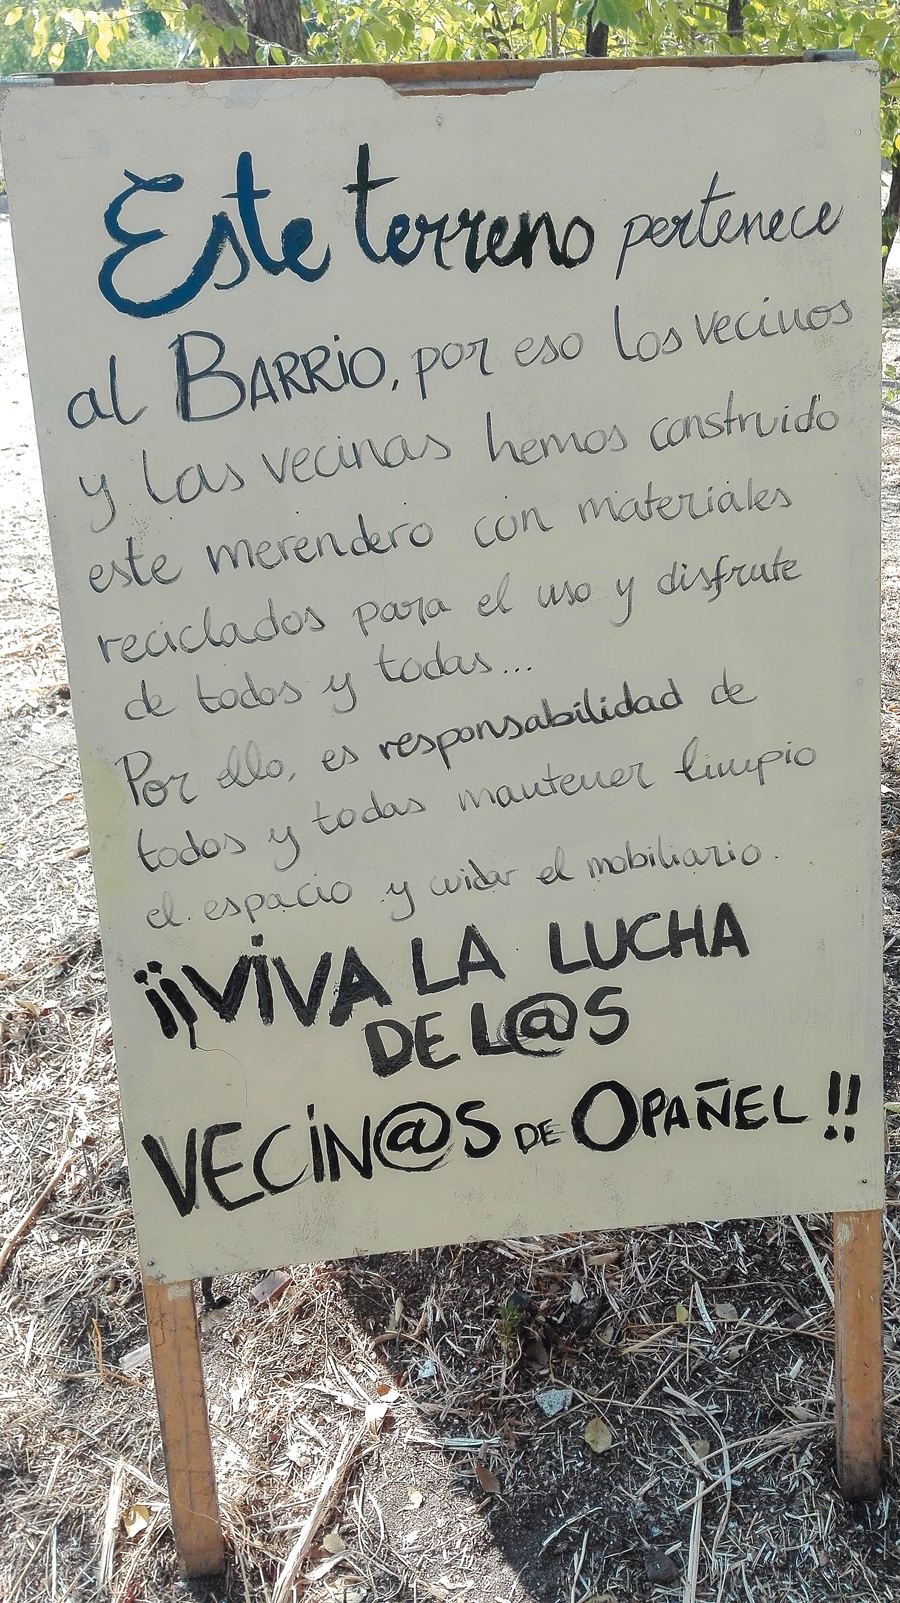 Este terreno pertenece
al BARRIO, por eso los vecinos
y las vecinas hemos construido
este merendero con materiales
reciclados para el uso y disfrute
de todos y todas...
Por ello, es responsabilidad de
todos y todas mantener limpio
el espacio y cuidar el mobiliario.
¡¡VIVA LA LUCHA
DE L@S
VECIN@S DE OPAÑEL!!